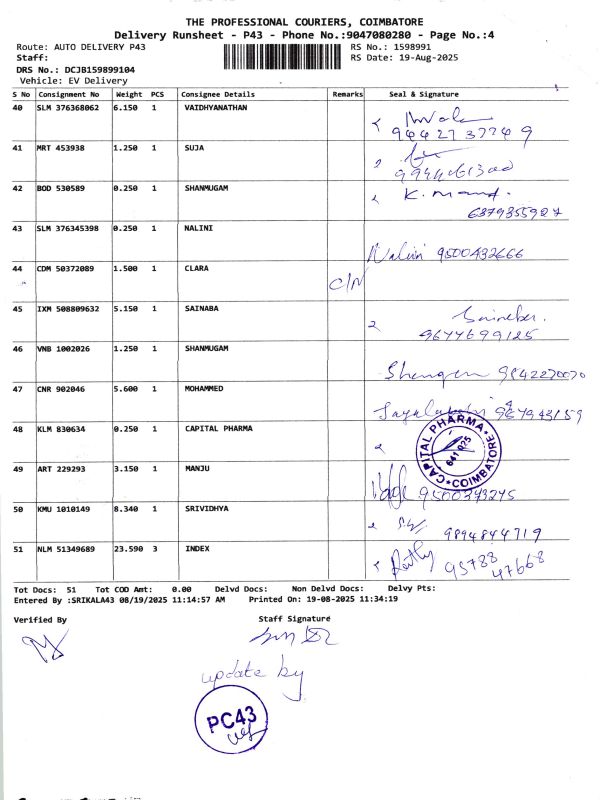 THE PROFESSIONAL COURIERS, COIMBATORE
Delivery Runsheet - P43 - Phone No.:9047080280 - Page No.:4
Route: AUTO DELIVERY P43 RS No.: 1598991
Staff: RS Date: 19-Aug-2025
DRS No.: DCJB159899104
Vehicle: EV Delivery
S No Consignment No Weight PCS Consignee Details Remarks Seal & Signature
40 SLM 376368062 6.150 1 VAIDHYANATHAN
9442737749
41 MRT 453938 1.250 1 SUJA
42 BOD 530589 0.250 1 SHANMUGAM K.
6379355927
43 SLM 376345398 0.250 1 NALINI
Nalini 9500432666
44 CDM 50372089 1.500 1 CLARA C/N
45 IXM 508809632 5.150 1 SAINABA
9677699125
46 VNB 1002026 1.250 1 SHANMUGAM
9842270070
47 CNR 902046 5.600 1 MOHAMMED
48 KLM 830634 0.250 1 CAPITAL PHARMA CAPITAL PHARMA COIMBATORE 641 025
49 ART 229293 3.150 1 MANJU
9500343275
50 KMU 1010149 8.340 1 SRIVIDHYA
9894844719
51 NLM 51349689 23.590 3 INDEX 95788
47668
Tot Docs: 51 Tot COD Amt: 0.00 Delvd Docs: Non Delvd Docs: Delvy Pts:
Entered By :SRIKALA43 08/19/2025 11:14:57 AM Printed On: 19-08-2025 11:34:19
Verified By Staff Signature
update by
PC43